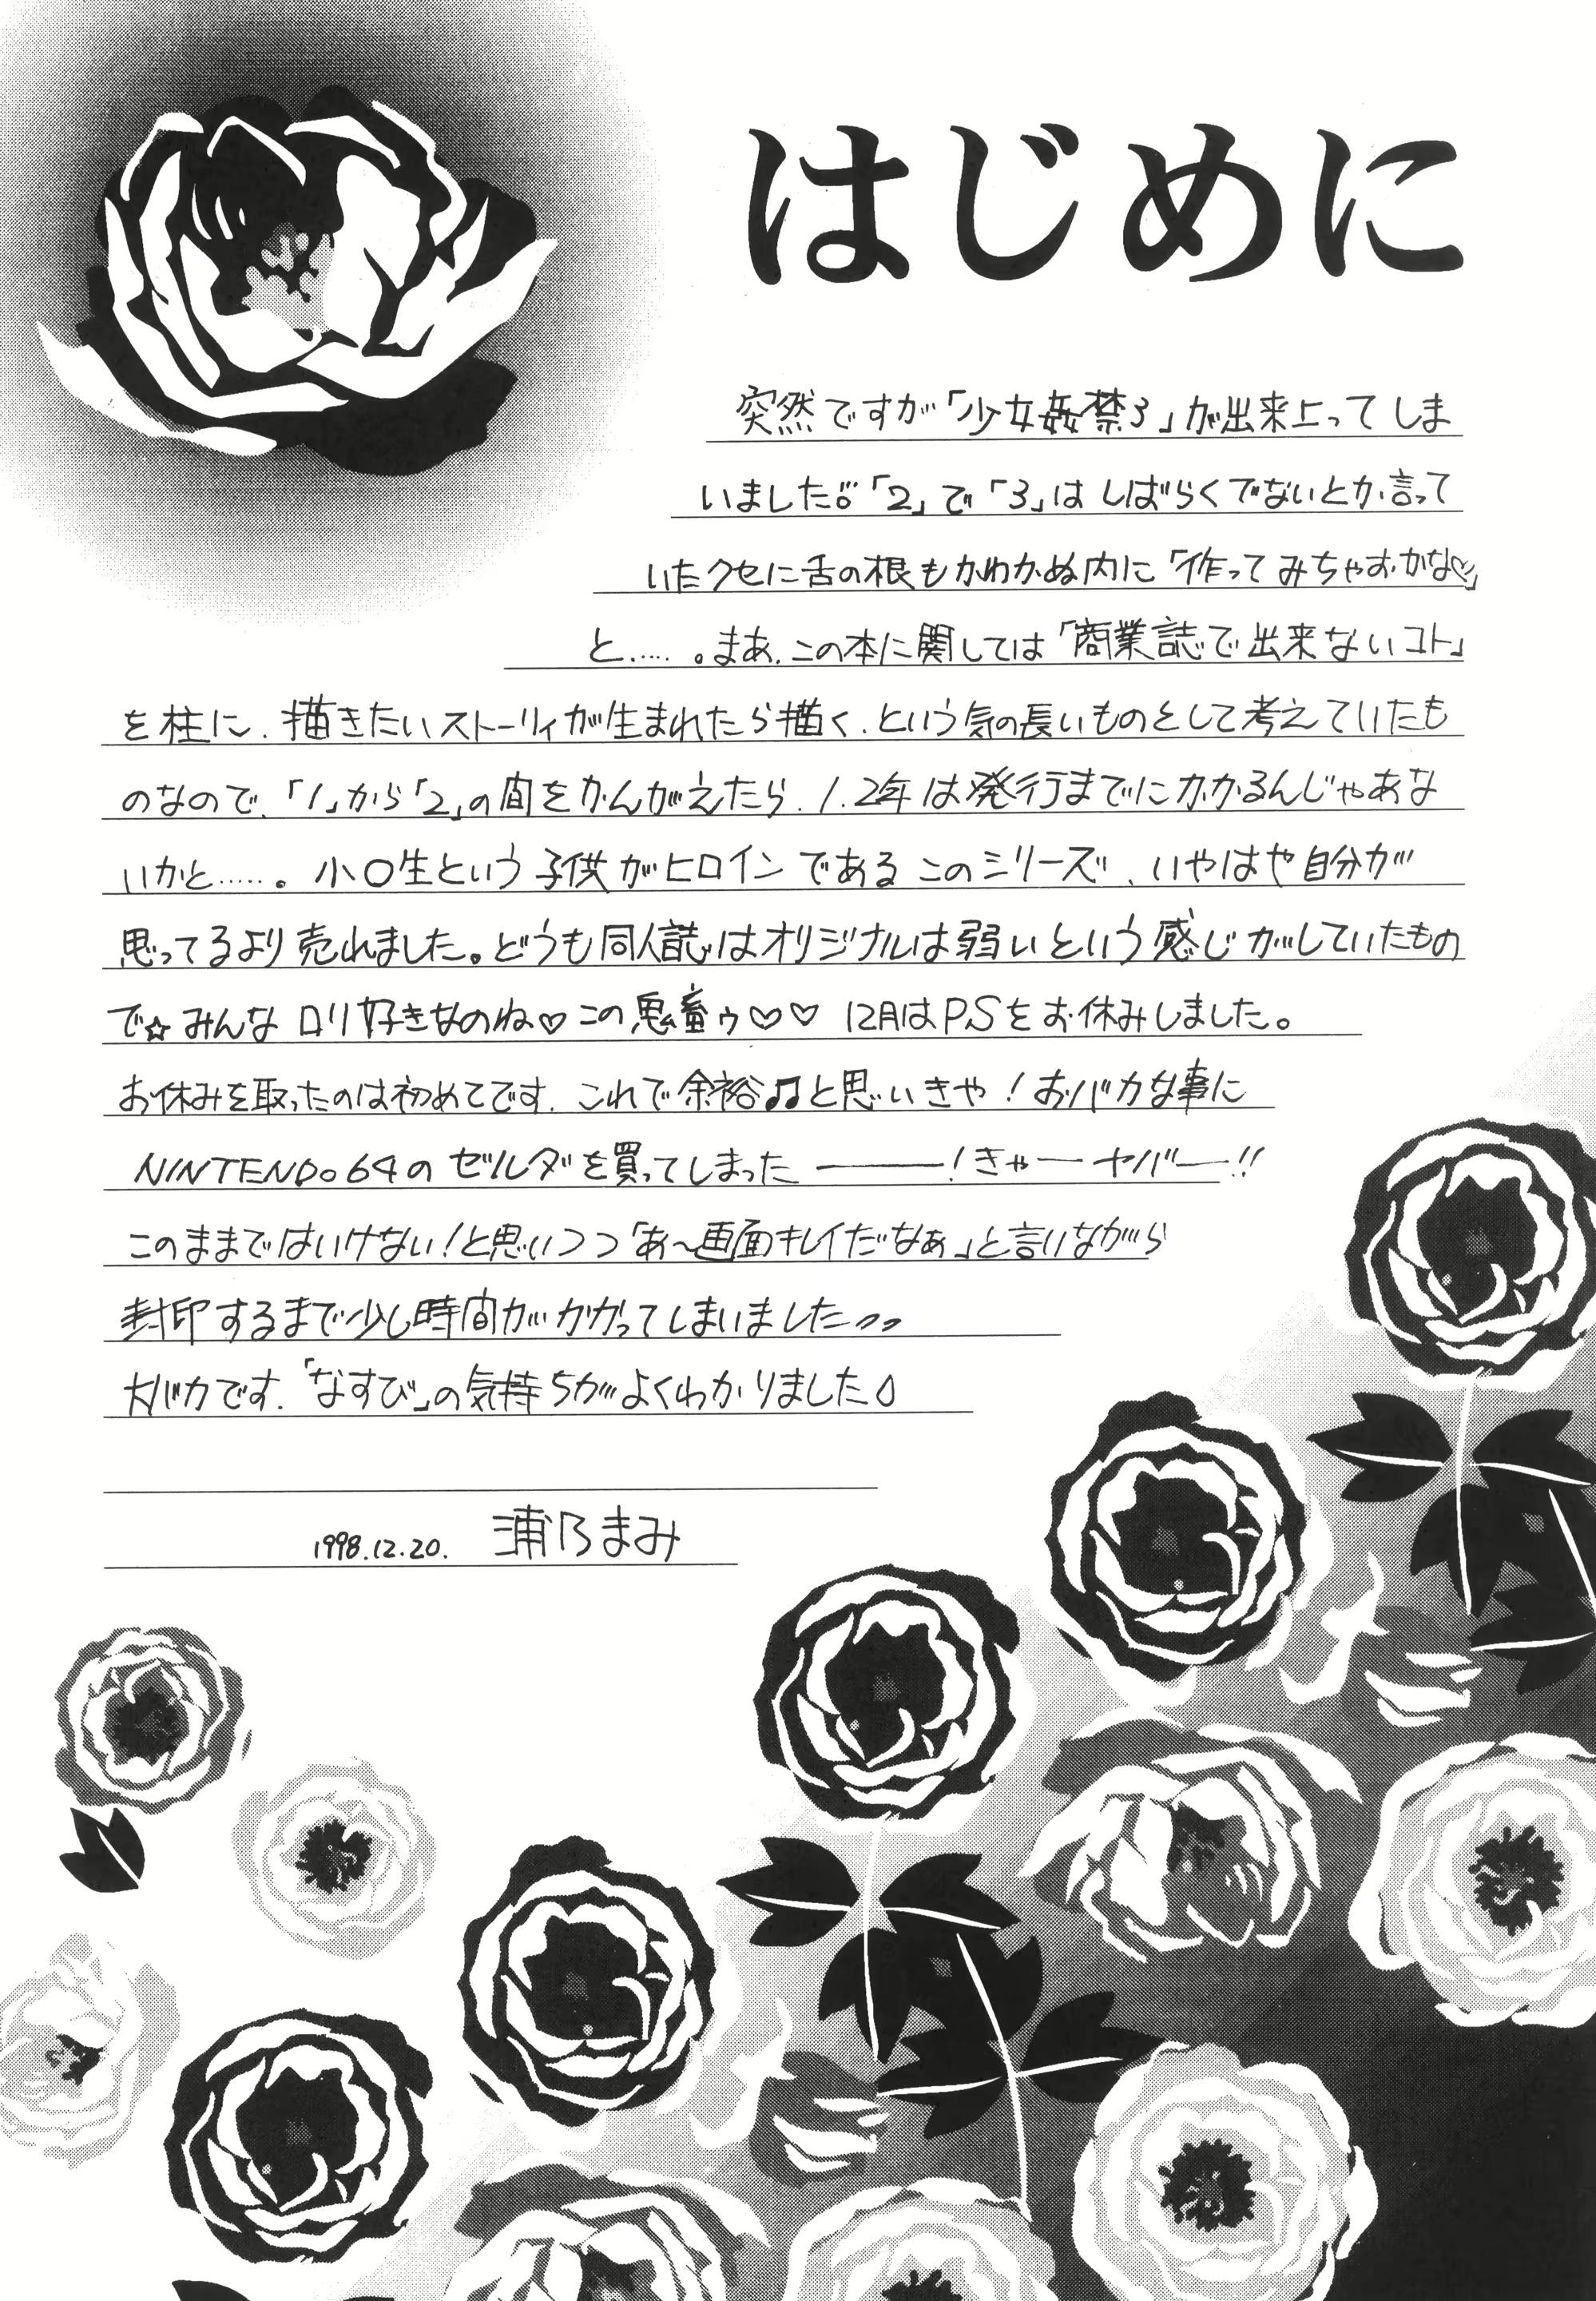 はじめに
突然ですが「少女姦禁3」が出来上ってしま
いました。「2」で「3」はしばらくでないとか言って
いたクセに舌の根もかわかぬ内に「作ってみちゃおかな♡」
と……。まあ、この本に関しては「商業誌で出来ないコト」
を柱に、描きたいストーリィが生まれたら描く、という気の長いものとして考えていたも
のなので、「1」から「2」の間をかんがえたら、1、2年は発行までにかかるんじゃあな
いかと……。小〇生という子供がヒロインであるこのシリーズ、いやはや自分が
思ってるより売れました。どうも同人誌はオリジナルは弱いという感じがしていたもの
で☆みんなロリ好きなのね♡この鬼畜ゥ♡♡ 12月はPSをお休みしました。
お休みを取ったのは初めてです。これで余裕♫と思いきや!おバカな事に
NINTENDO64のゼルダを買ってしまった―――!きゃーヤバー!!
このままではいけない!と思いつつ「あ〜画面キレイだなぁ」と言いながら
封印するまで少し時間がかかってしまいました
大バカです。「なすび」の気持ちがよくわかりました
1998.12.20. 浦乃まみ